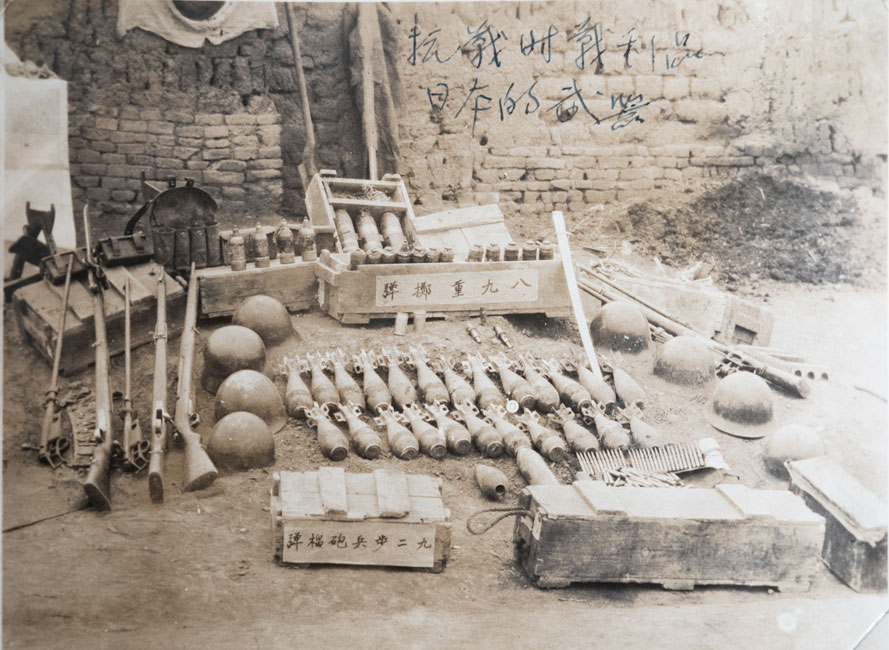 抗戰时戰利品
日本的武器
八九重擲彈
九二步兵砲榴彈